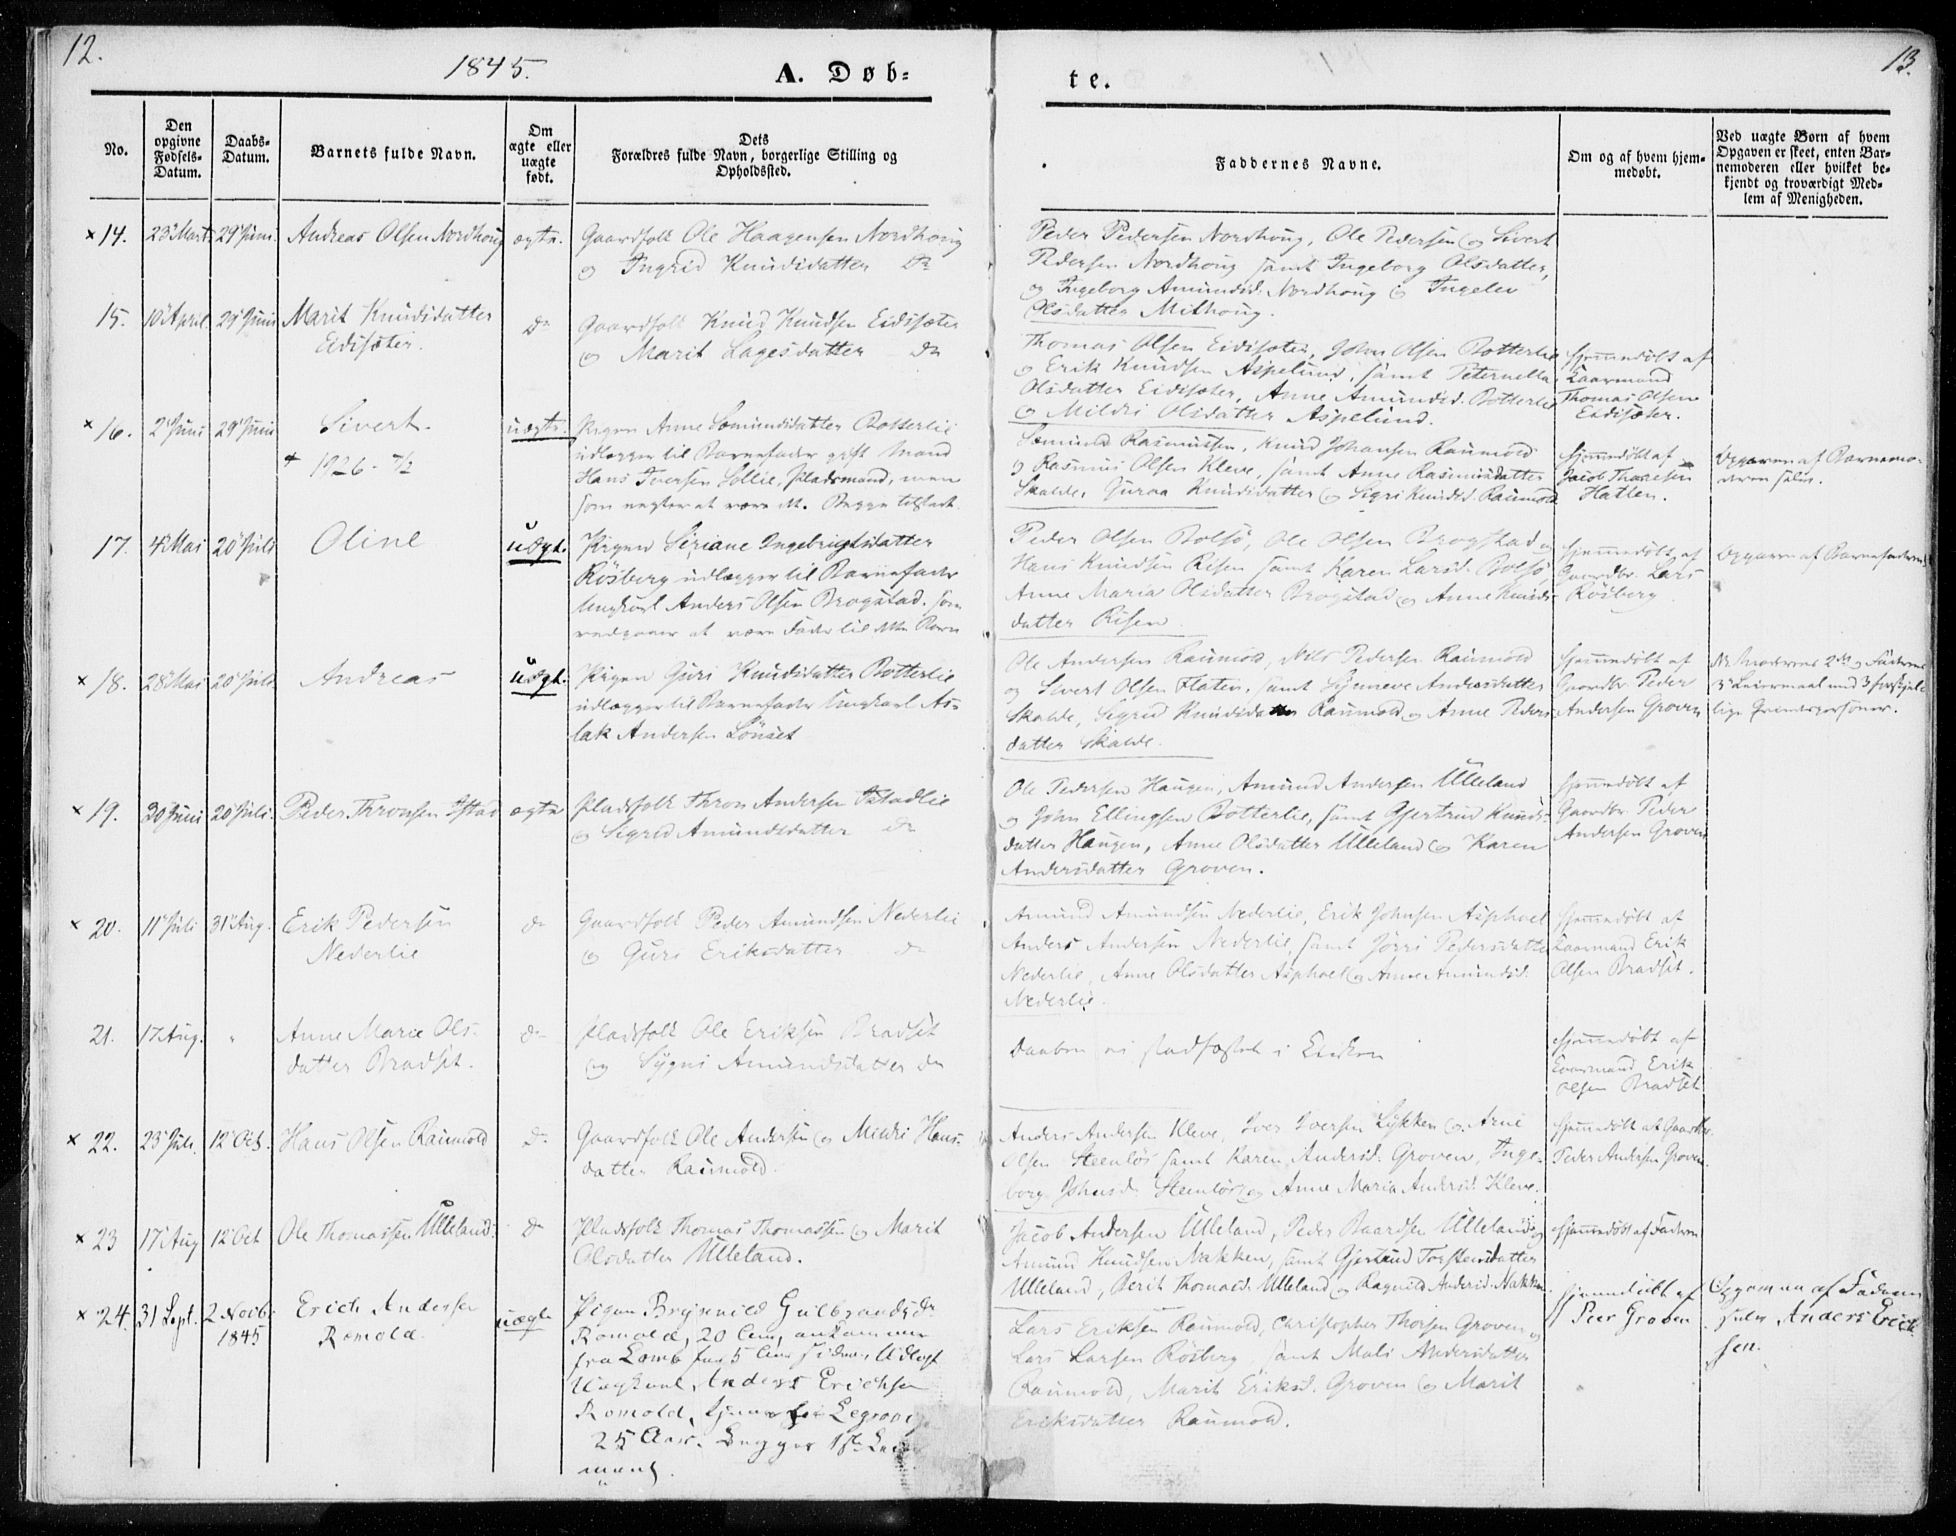 12.
1845.
A. Døb=
te.
13.
No.
Den
opgivne
Fødsels-
Datum.
Daabs-
Datum.
Barnets fulde Navn.
Om
ægte eller
uægte
født.
Dets
Forældres fulde Navn, borgerlige Stilling og
Opholdssted.
Faddernes Navne.
Om og af hvem hjem-
medøbt.
Ved uægte Børn af hvem
Opgaven er skeet, enten Bar-
nemoderen eller hvilket be-
kjendt og troværdigt Med-
lem af Menigheden.
× 14. 23 Marts 29 Juni Andreas Olsen Nordhoug ægte.
Gaardfolk Ole Haagensen Nordhoug
og Ingrid Knudsdatter Do
Peder Pedersen Nordhoug, Ole Pedersen og Sivert
Pedersen Nordhoug samt Ingeborg Olsdatter,
og Ingeborg Amundsd. Nordhoug og Ingelev
Olsdatter Mithoug.
15. 10 April 29 Juni Marit Knudsdatter
Eidsæter.
Do
Gaardfolk Knud Knudsen Eidsæter
og Marit Lagesdatter Do
Thomas Olsen Eidsæter, John Olsen Botterlie
og Erik Knudsen Aspelund, samt Peternella
Olsdatter Eidsæter, Anne Amundsd. Botterlie
og Mildri Olsdatter Aspelund.
hjemmedøbt af
Laarmand
Thomas Olsen
Eidsæter.
× 16. 2 Juni 29 Juni Sivert.
+ 1926 - 7/2
uægte.
Pigen Anne Semundsdatter Botterlie
udlægger til Barnefader gift Mand
Hans Iversen Sollie, Pladsmand, men
som negter at være det. Begge tilstede.
Semund Rasmussen, Knud Johansen Raumold
og Rasmus Olsen Kleve, samt Anne Rasmusdatter
Skalde, Guroa Knudsdatter og Sigri Knudsd. Raumold
hjemmedøbt af
Jacob Thoresen
Hatlen.
Opgaven af Barnemo-
deren selv.
17. 4 Mai 20 Juli Oline uægt.
Pigen Siriane Ingebrigtsdatter
Rösberg udlægger til Barnefader
Ungkarl Anders Olsen Brogstad. som
vedgaaer at være Fader til dette Barn
Peder Olsen Bolsö, Ole Olsen Brogstad og
Hans Knudsen Risen samt Karen Larsd. Bolsö,
Anne Maria Olsdatter Brogstad og Anne Knuds-
datter Risen.
hjemmedøbt af
Gaardbr. Lars
Rösberg.
Opgaven af Barnefaderen
× 18. 28 Mai 20 Juli Andreas uægt.
Pigen Guri Knudsdatter Botterlie
udlægger til Barnefader Ungkarl As-
lak Andersen Lönset
Ole Andersen Raumold, Nils Pedersen Raumold
og Sivert Olsen Flaten, samt Synneve Andersdatter
Skalde, Sigrid Knudsdatter Raumold og Anne Peders-
datter Skalde.
hjemmedøbt af
Gaardbr. Peder
Andersen Groven
Moderens 2det og Faderens
3die Leiermaal med 3 forskjel-
lige
× 19. 30 Juni 20 Juli. Peder Thronsen Istad ægte
Pladsfolk Thron Andersen Istadlie
og Sigrid Amundsdatter Do
Ole Pedersen Haugen, Amund Andersen Ulleland
og John Ellingsen Botterlie, samt Gjertrud Knuds-
datter Haugen, Anne Olsdatter Ulleland og Karen
Andersdatter Groven.
hjemmedøbt af
Gaardbr. Peder
Andersen Groven
× 20. 11 Juli 31 Aug. Erik Pedersen
Nederlie
Do
Gaardfolk Peder Amundsen Nederlie
og Guri Eriksdatter Do
Amund Amundsen Nederlie, Erik Johnsen Asphoel
Anders Andersen Nederlie, samt Jörri Pedersdatter
Nederlie, Anne Olsdatter Asphoel og Anne Amundsd.
Nederlie.
hjemmedøbt af
Laarmand Erik
Olsen Bradsit.
21. 17 Aug. " Anne Marie Ols-
datter Bradsit.
Do
Pladsfolk Ole Eriksen Bradsit
og Sygni Amundsdatter Do
Daaben ei stadfæstet i Kirken
hjemmedøbt af
Laarmand Erik
Olsen Bradsit
× 22. 23 Juli. 12 Oct. Hans Olsen Raumold Do
Gaardfolk Ole Andersen og Mildri Hans-
datter Raumold.
Anders Andersen Kleve, Iver Iversen Lykken og Arne
Olsen Steenlös samt Karen Andersd. Groven, Inge-
borg Johnsd. Steenlös og Anne Maria Andersd. Kleve.
hjemmedøbt af Gaardbr.
Peder Andersen Groven.
× 23 17 Aug 12 Oct Ole Thomassen Ulleland. Do
Pladsfolk Thomas Thomassen og Marit
Olsdatter Ulleland.
Jacob Andersen Ulleland, Peder Baardsen Ulleland og
Amund Knudsen Nakken, samt Gjertrud Torstensdatter
Ulleland, Berit Thomasd. Ulleland og Ragnild Andersd. Nakken
hjemmedøbt af Faderen
× 24. 31 Sept. 2 Novb.
1845
Erich Andersen
Romold.
uægte
Pigen Brynnild Gulbrandsdr
Romold, 20 Aar, ankommen
fra Lomb for 5 Aar siden, Udlagt
Ungkarl Anders Erichsen
Romold, tjener
25 Aar. Begges 1ste Leier-
maal.
Lars Eriksen Raumold, Christopher Thorsen Groven og
Lars Larsen Rösberg, samt Mali Andersdatter
Raumold, Marit Eriksd. Groven og Marit
Eriksdatter Raumold.
hjemmedøbt af
Peer Groven
Opgaven af Faderen
selv Anders Erich-
sen.